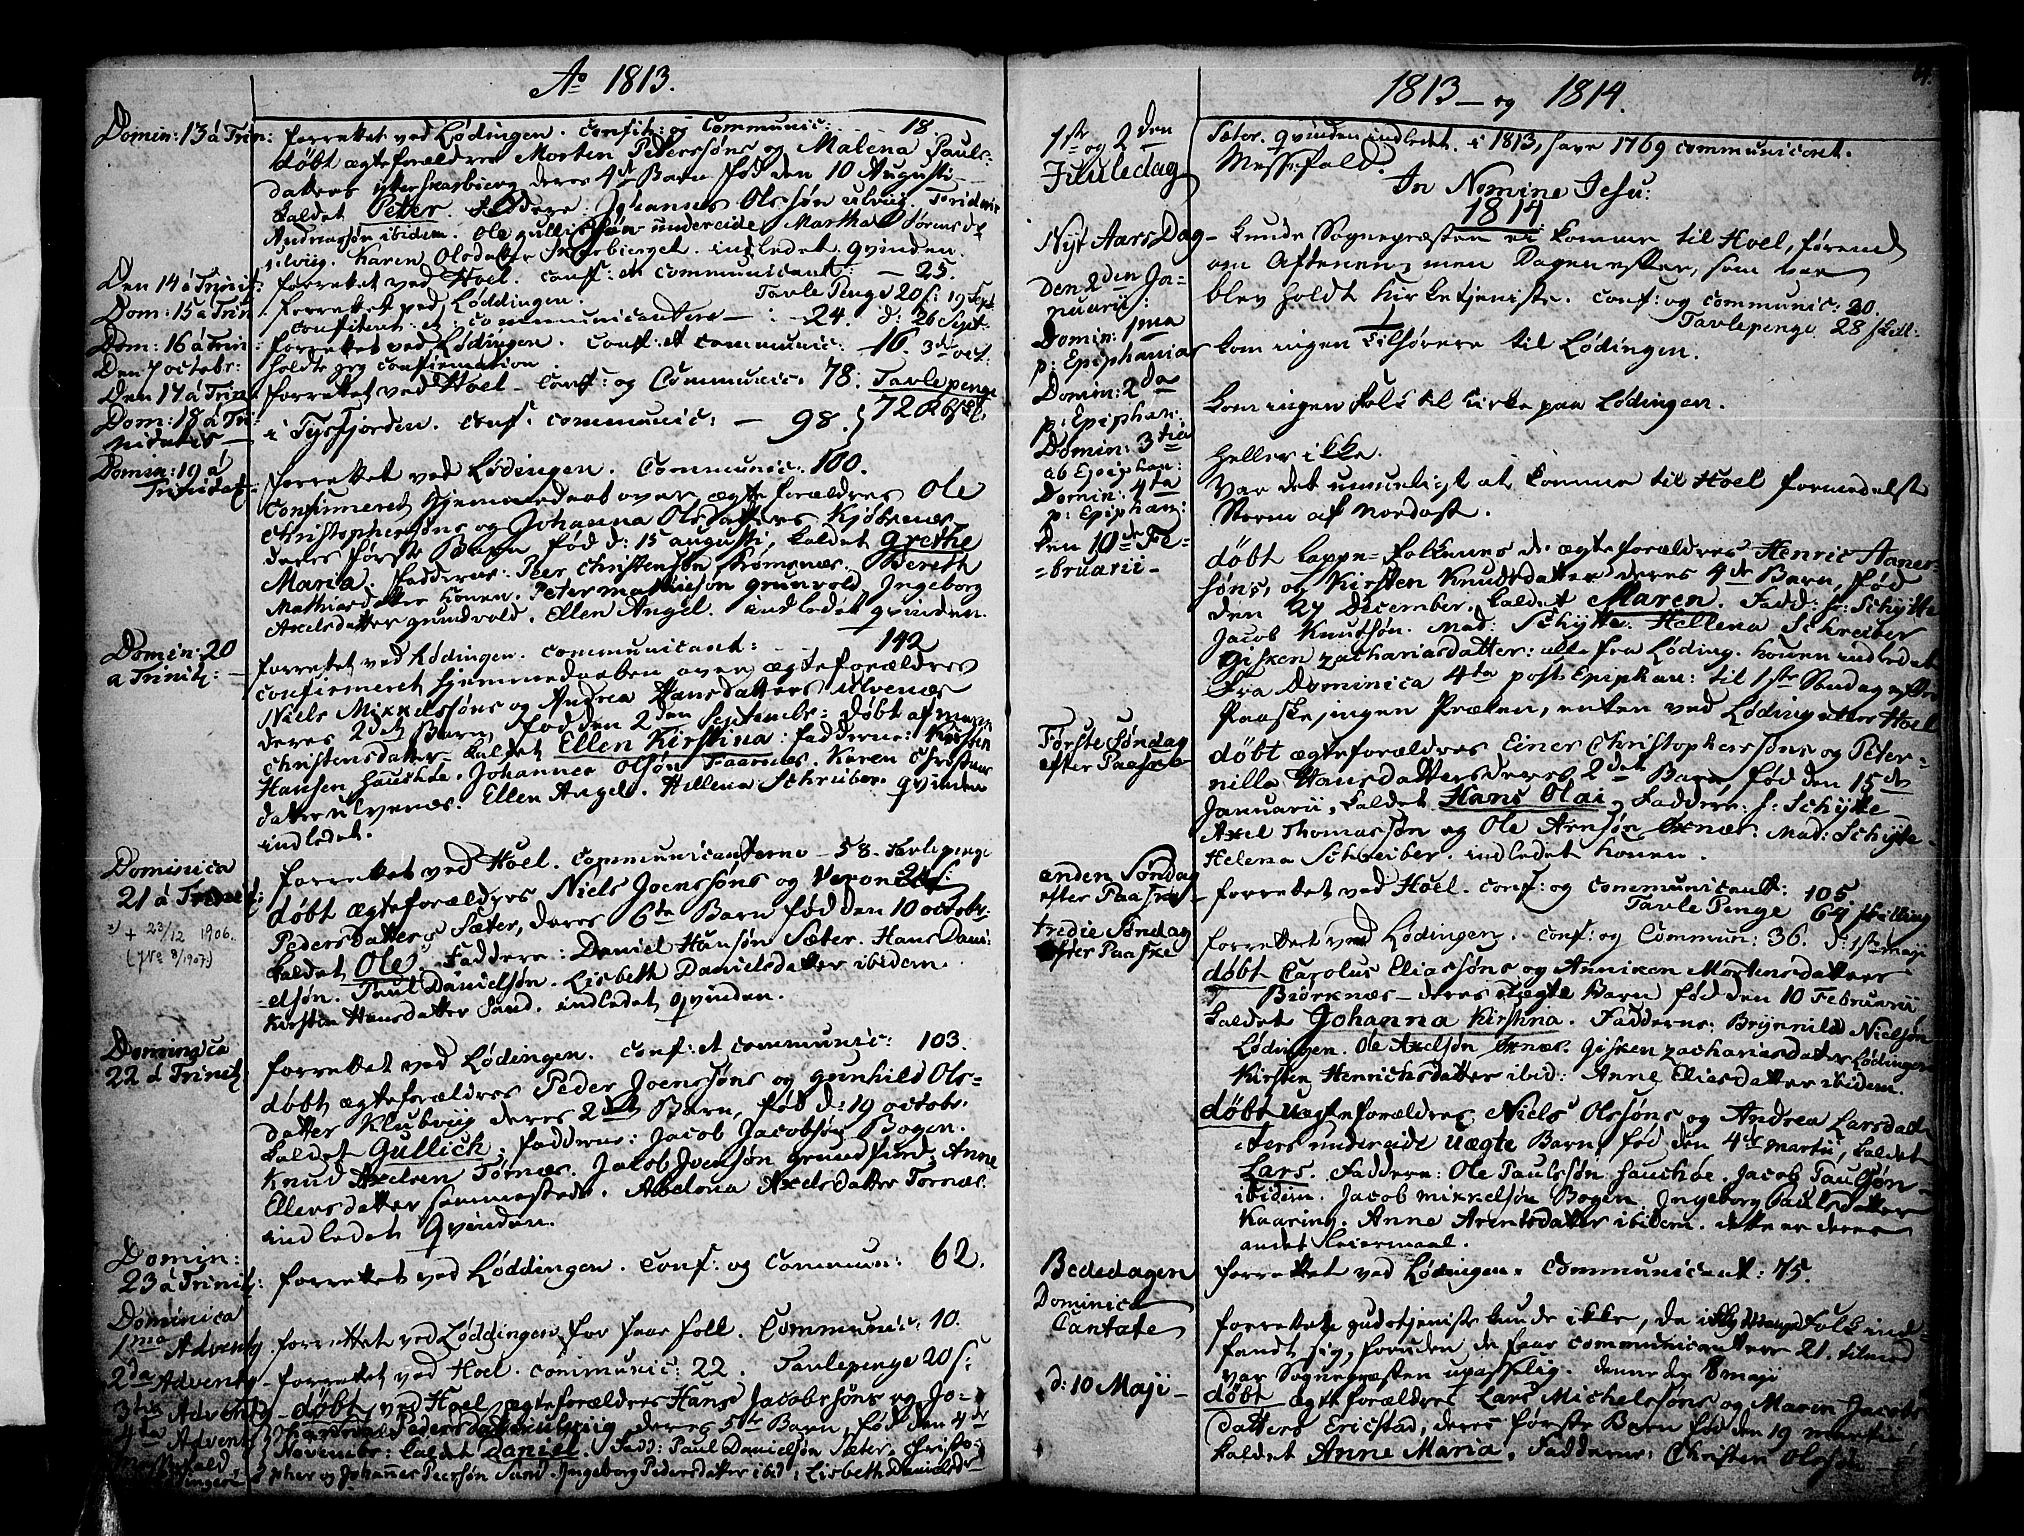 Ao 1813.
Domin: 13 á Trin: forrettet ved Lødingen. Confit: og Communic: 18
døbt ægteforældre Morten Pedersøns og Malena Pauls-
datters yterskarbierg deres 4de Barn fød den 10 Augusti
kaldet Peter. Faddere: Johannes Olssøn ulviig.
Andreassøn ibidem. Ole Gullichsøn undereide Martha Sørensd:
ulviig. Karen Olsdatter Skarbierget. indledet Qvinden.
Den 14 á Trinit: forrettet ved Hoel. Conf: et Communicant: - 25.
Tavle Penge 20 s: 19 Sept.
Dom: 15 á Trin: forrettet ved Løddingen.
Confitent: et Communicantere - : - 24. d: 26 Sept.
Dom: 16 á Trin: forrettet ved Lødingen. Conf: et Communic: 16. 3de oct.
Den 7 octobr: holdt jeg Confirmation
Den 17 á Trin: forrettet ved Hoel. Conf: og Communic: 78: Tavlepenge
Dom: 18 á Tri-
nidatis - i Tysfjorden. Conf: Communic: - 98.
Domin: 19 á
Trinidat: forrettet ved Lødingen. Communic: 100.
Confirmeret Hjemmedaab over ægteforældres Ole
Christophersøns og Johanna Olsdatters Kjøbsnæs
deres første Barn fød d: 15 augusti, kaldet Grethe
Maria. Fadderne: Peer Christensøn Bereth
Mathiasdatter Konen. Peter Mathisøn grunvold Ingeborg
Axelsdatter grundvold. Ellen Angel. indledet Qvinden.
Domin: 20
á Trinit: - forrettet ved Lødingen. Communicant: 142
Confirmeret Hjemmedaaben over ægteforældres
Niels Mikkelsøns og Andrea Hansdatters ulvenæs
deres 2det Barn, fød den 2den Septembr: døbt af
Christensdatter kaldet Ellen Kirstina. Fadderne:
Hansen Hauchøe. Johannes Olsøn Faarnes. Karen Christens
datter ulvenæs. Ellen Angel. Hellena Schreiber. Qvinden
indledet.
Dominica
21 á Trinit: forrettet ved Hoel. Communicanterne - 58. Tavlepenge 24 s:
døbt ægteforældres Niels Joenssøns og Verona
+ 23/12 1906.
(Nre 8/1907.)
Pedersdatters Sæter, deres 6te Barn fød den 10 octobr:
kaldet Ole. Faddere: Daniel Hansøn Sæter. Hans Dani-
elsøn. Paul Danielsøn. Lisbeth Danielsdatter ibidem.
Kirsten Hansdatter Sand. indledet Qvinden.
Dominica
22 á Trinit: forrettet ved Lødingen. Conf: et Communic: 103.
døbt ægteforældres Peder Joenssøns og Gunhild Ols-
datter Klubviig deres 2det Barn, fød d: 19 octobr.
kaldet Gullich. Fadderne: Jacob Jacobsøn Bogen.
Knud Axelsen Tørnæs. Jacob Joensøn Grundfiord. Anne
Ellersdatter sammestede. Abelona Axelsdatter Tornæs.
indledet Qvinden.
Domin:
23 á Trinit: forrettet ved Løddingen. Conf: og Commun: 62.
Dominica
1ma Advent forrettet ved Løddingen for faae folk. Communic: 10.
2da Advent forrettet ved Hoel. Communic: 22. Tavlepenge 20 s:
3tia Advent døbt ved Hoel ægteforældres Hans Jacobsøns og Jo-
4ta Advent Pedersdatters ulviig deres 5te Barn, fød den 4de
Novembr: kaldet Daniel. Fadd: Paul Danielsøn Sæter. Christo-
pher og Johannes Peersøn Sand. Ingeborg Pedersdatter ibid: Lisbeth Danielsdr
1813 - og 1814.
1ste og 2den
Juuledag
Sæter. Qvinden indledet. i 1813, have 1769 communicant.
Messefald.
In Nomine Jesu:
1814
Nyt Aars Dag - kunde Sognepræsten ei komme til Hoel, førend
den 2den Ja-
nuarii: om Aftenen, men Dagen efter, som var
blev holdt Kirketjeniste. Conf: og Communic: 20.
Tavlepenge 28 skill:
Domin: 1ma
p: Epiphanias kom ingen Tilhørere til Lødingen.
Domin: 2da
p: Epiphan: kom ingen folk til Kirke paa Lødingen.
Domin: 3tia
ab Epiphan: Heller ikke.
Domin: 4ta
p: Epiphan: var det umueligt at komme til Hoel formedelst
Storm af Nordost.
den 10de Fe-
bruarii - døbt Lappe-folkenes de ægteforældres Henric Aaner-
søns, og Kirsten Knudsdatter deres 4de Barn, fød
den 27 December, kaldet Maren. Fadd: hr: Schytte
Jacob Knutsøn. Mad: Schytte. Hellena Schreiber
Gisken Zachariasdatter: alle fra Løding. Konen indledet
Fra Dominica 4ta post Epiphan: til 1ste Søndag efter
Paaske, ingen Præken, enten ved Løding eller Hoel
Første Søndag
efter Paaske døbt ægteforældres Einer Christophersøns og Peter-
nilla Hansdatters deres 2det Barn fød den 15de
Januarii, kaldet Hans Olai, Faddere: hr: Schytte
Axel Thomassøn og Ole Arnsøn Øxnæs. Mad: Schytte
Helena Schreiber. indledet Konen.
anden Søndag
efter Paaske - forrettet ved Hoel. Conf: og Communicant: 105.
Tavle Penge 64 skilling
tredie Søndag
efter Paaske forrettet ved Lødingen. Conf: og Commun: 36. d: 1ste maji
døbt Carolus Eliassøns og Anniken Mortensdatters
Biørknæs - deres ægte Barn fød den 10 Februarii
kaldet Johanna Kirstina. Fadderne: Brynnild Nielsøn
Lødingen. Ole Axelsøn Øxnæs. Gisken Zachariasdatter Lødingen
Kirsten Henrichsdatter ibid: Anne Eliasdatter ibidem.
døbt uægteforældres Niels Olssøns og Andrea Larsdat-
ters undereidt uægte Barn, fød den 4de martii, kaldet
Lars. Faddere: Ole Paulssøn Hauchøe. Jacob Paulsøn
ibidem. Jacob Mikkelsøn Bogen. Ingeborg Paulsdatter
Kaaring. Anne Arentsdatter ibidem. dette er deres
andet Leiermaal.
Bededagen forrettet ved Lødingen. Communicant: 75.
Dominica
Cantate forrette gudstjeniste kunde ikke, da Folk ind-
fandt sig, foruden de faae communicantere 21. tilmed
var Sognepræsten upasselig. denne dag 8 maji
d: 10 Maji - døbt ægteforældres Lars Michelssøns og Maren Jacobs
datters Erichstad, deres første Barn fød den 19 martii
kaldet Anne Maria. Fadderne: Christen Olssøn